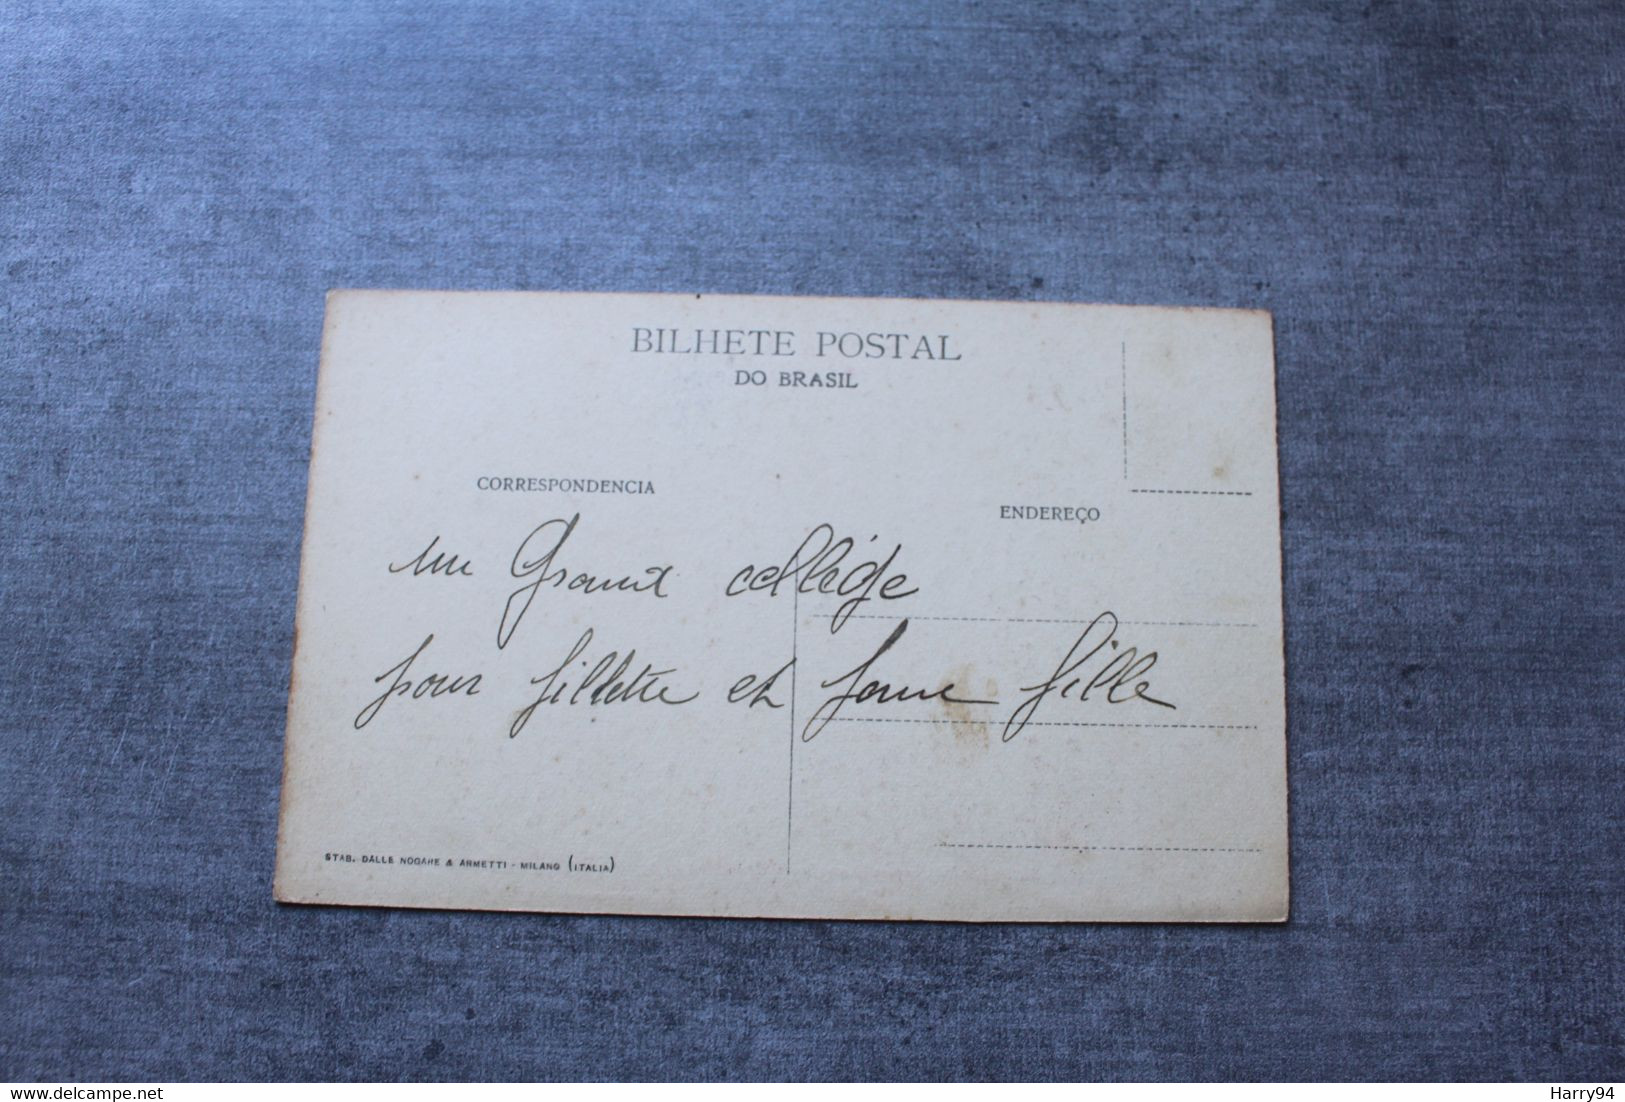 BILHETE POSTAL
DO BRASIL
CORRESPONDENCIA
ENDEREÇO
un Grand collège
pour fillette et jeune fille
STAB. DALLE NOGARE & ARMETTI - MILANO (ITALIA)
www.delcampe.net
Harry94